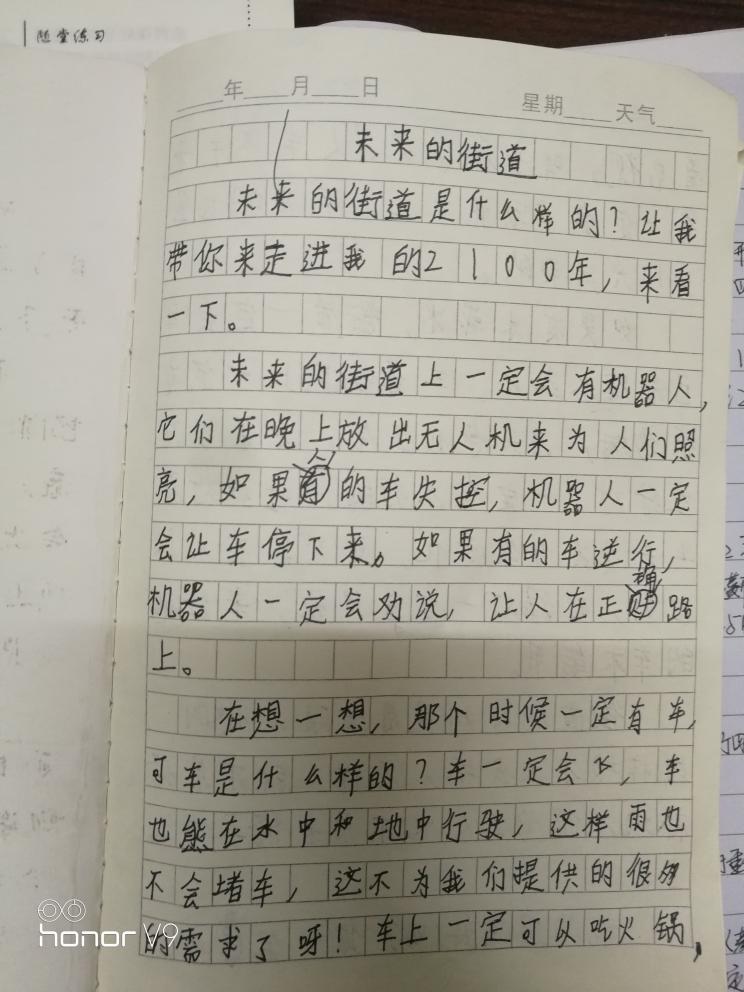 随堂练习
年 月 日 星期 天气
未来的街道
未来的街道是什么样的?让我
带你来走进我的2100年,来看
一下。
未来的街道上一定会有机器人,
它们在晚上放出无人机来为人们照
亮,如果有人的车失控,机器人一定
会让车停下来。如果有的车逆行,
机器人一定会劝说,让人在正确路
上。
在想一想,那个时候一定有车,
可车是什么样的?车一定会飞,车
也熊在水中和地中行驶,这样雨也
不会堵车,这不为我们提供的很多
的需求了呀!车上一定可以吃火锅,
honor V9